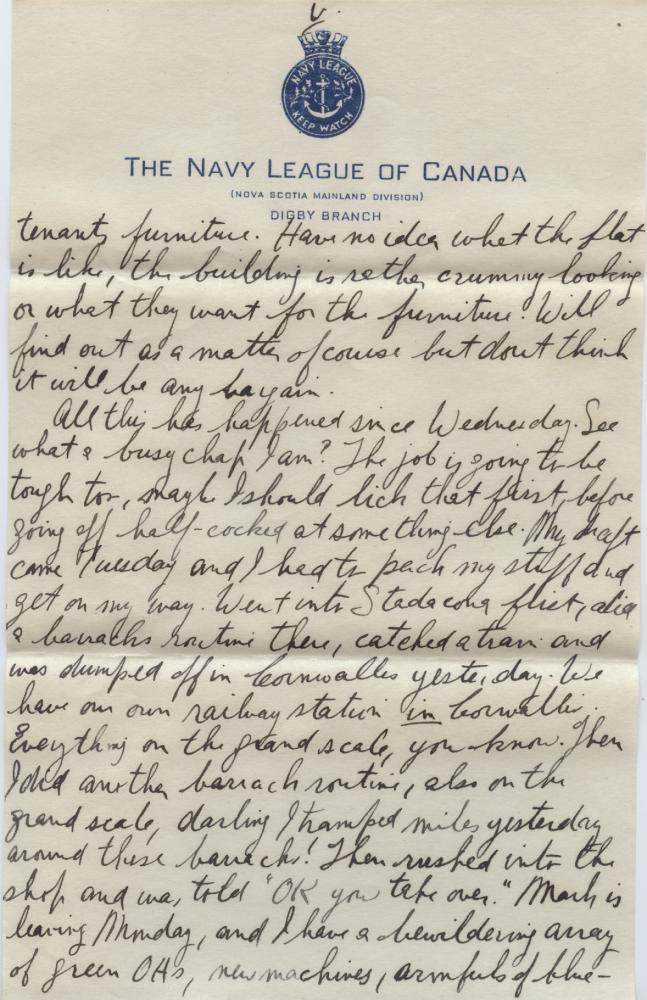 V.
NAVY LEAGUE
KEEP WATCH
THE NAVY LEAGUE OF CANADA
(NOVA SCOTIA MAINLAND DIVISION)
DIGBY BRANCH
tenants furniture. Have no idea what the flat
is like, the building is rather crummy looking
or what they want for the furniture. Will
find out as a matter of course but don't think
it will be any bargain.
All this has happened since Wednesday. See
what a busy chap I am? The job is going to be
tough too, maybe I should lick that first, before
going off half-cocked at something else. My draft
came Tuesday and I had to pack my stuff and
get on my way. Went into Stadacona first, did
a barracks routine there, catched a train and
was dumped off in Cornwallis yesterday. We
have our own railway station in Cornwallis.
Everything on the grand scale, you know. Then
I did another barrack routine, also on the
grand scale, darling I tramped miles yesterday
around these barracks! Then rushed into the
shop and was told "OK you take over." Mark is
leaving Monday, and I have a bewildering array
of green OA's, new machines, armfuls of blue-